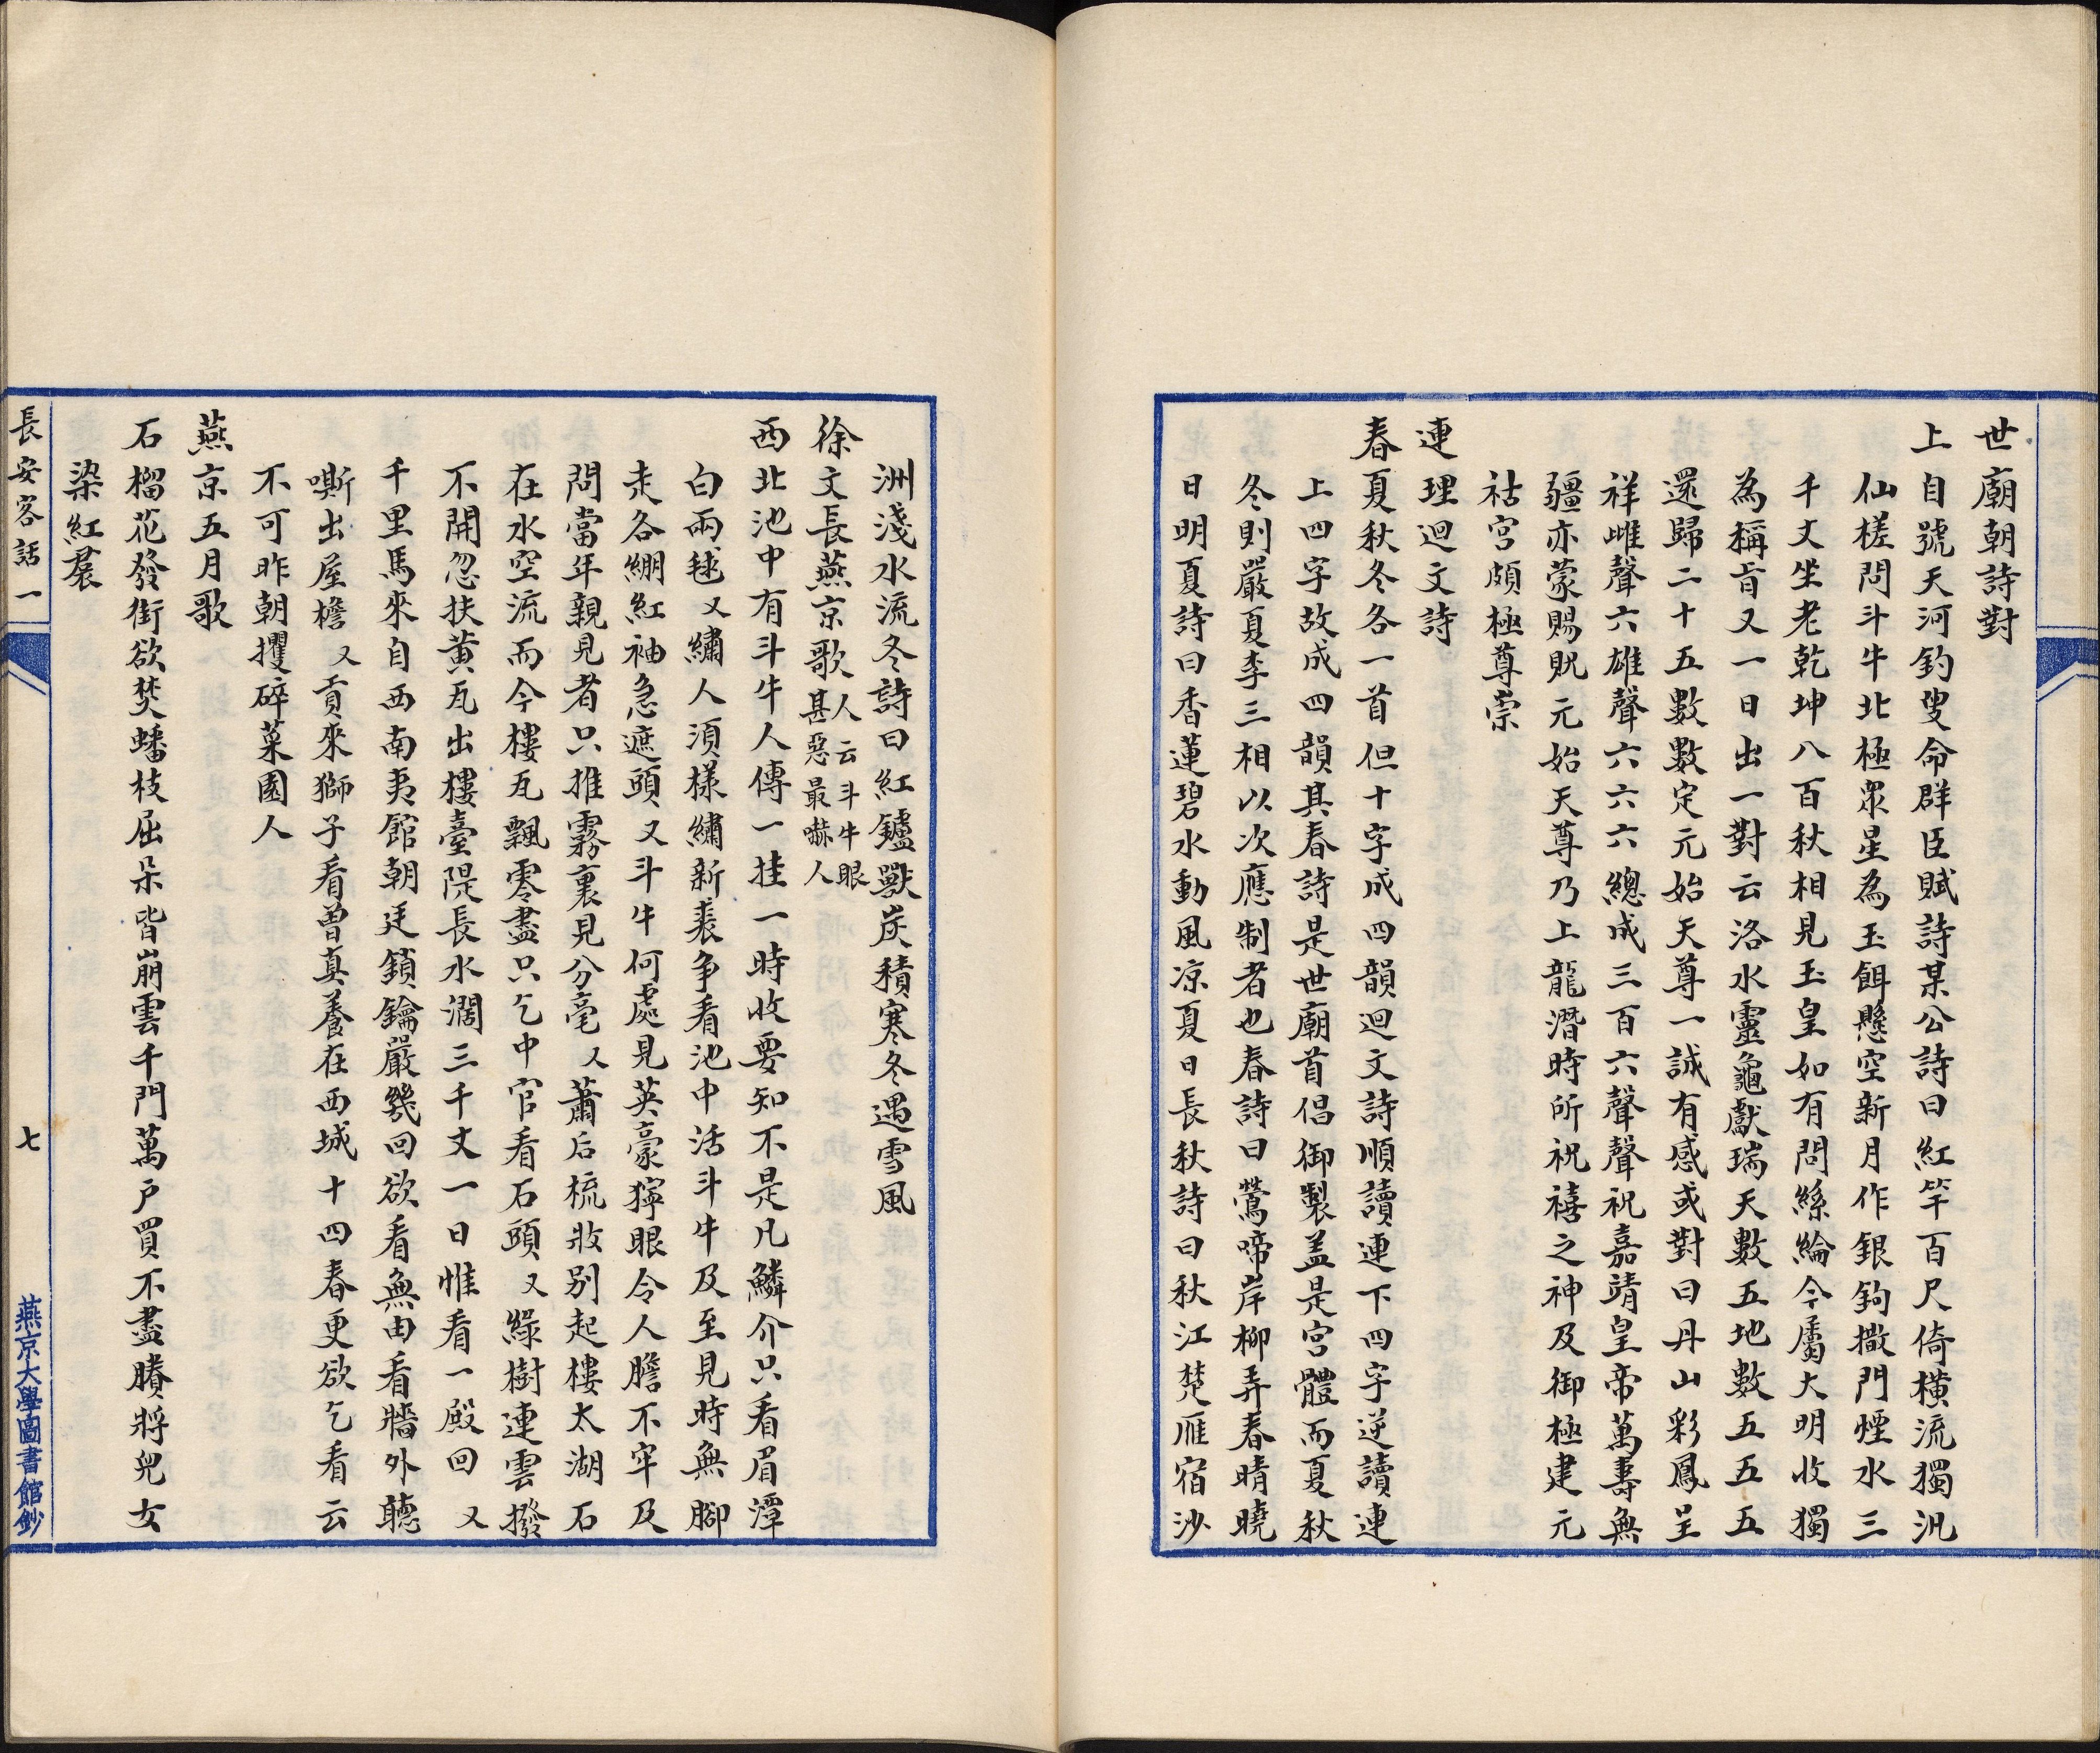 世廟朝詩對
上自號天河釣叟命群臣賦詩某公詩曰紅竿百尺倚橫流獨汎
仙槎問斗牛北極眾星為玉餌懸空新月作銀鉤撒門煙水三
千丈坐老乾坤八百秋相見玉皇如有問絲綸今屬大明收獨
為稱旨又一日出一對云洛水靈龜獻瑞天數五地數五五五
還歸二十五數數定元始天尊一誠有感或對曰丹山彩鳳呈
祥雌聲六雄聲六六六總成三百六聲聲祝嘉靖皇帝萬壽無
疆亦蒙賜貺元始天尊乃上龍潛時所祝禧之神及御極建元
祜宮頗極尊崇
連理迴文詩
春夏秋冬各一首但十字成四韻迴文詩順讀連下四字逆讀連
上四字故成四韻其春詩是世廟首倡御製盖是宮體而夏秋
冬則嚴夏李三相以次應制者也春詩曰鶯啼岸柳弄春晴曉
日明夏詩曰香蓮碧水動風凉夏日長秋詩曰秋江楚雁宿沙
洲淺水流冬詩曰紅鑪獸炭積寒冬遇雪風
徐文長燕京歌人云斗牛眼甚惡最嚇人
西北池中有斗牛人傳一挂一時收要知不是凡鱗介只看眉潭
白兩毬又繡人須樣繡新裘争看池中活斗牛及至見時無腳
走各綳紅袖急遮頭又斗牛何處見英豪獰眼令人膽不牢及
問當年親見者只推霧裏見分毫又蕭后梳妝别起樓太湖石
在水空流而今樓瓦飄零盡只乞中官看石頭又綠樹連雲撥
不開忽扶黃瓦出樓臺隄長水濶三千丈一日惟看一殿回又
千里馬來自西南夷館朝廷鎖鑰嚴幾回欲看無由看牆外聽
嘶出屋檐又貢來獅子看曾真養在西城十四春更欲乞看云
不可昨朝攫碎菓園人
燕京五月歌
石榴花發街欲焚蟠枝屈朵皆崩雲千門萬戶買不盡賸將兒女
染紅裠
長安客話一
七
燕京大學圖書館鈔